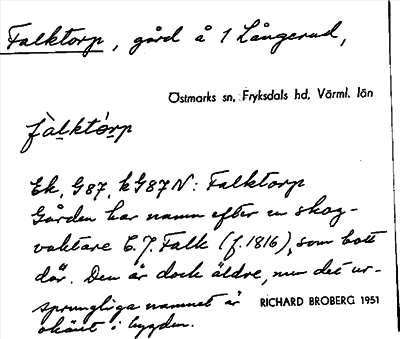 Falktorp, gård å 1 Långerud,
Östmarks sn, Fryksdals hd, Värml. län
fàlktórp
Ek, G87, kG87N: Falktorp
Gården har namn efter en skog-
vaktare C. J. Falk (f. 1816), som bott
där. Den är dock äldre, men det ur-
sprungliga namnet är
okänt i bygden.
RICHARD BROBERG 1951